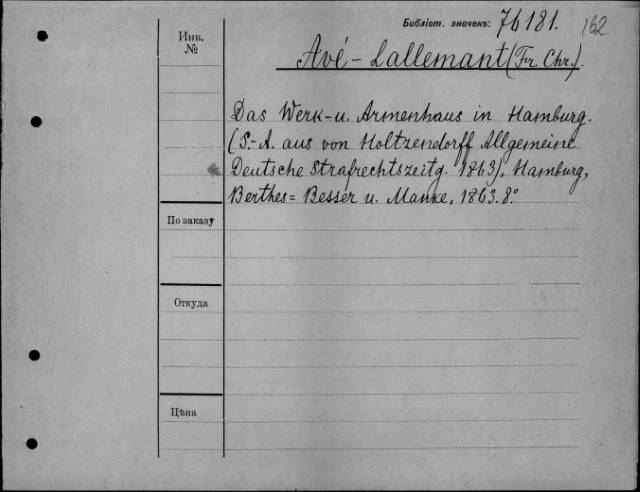 Библіот. значекъ: 76181. 162
Инв.
№
Avé-Lallemant (Fr. Chr.).
Das Werk- u. Armenhaus in Hamburg.
(S.-A. aus von Holtzendorff Allgemeine
Deutsche Strafrechtszeitg. 1863). Hamburg,
Berthes= Besser u. Manke, 1863. 8.°
По заказу
Откуда
Цѣна